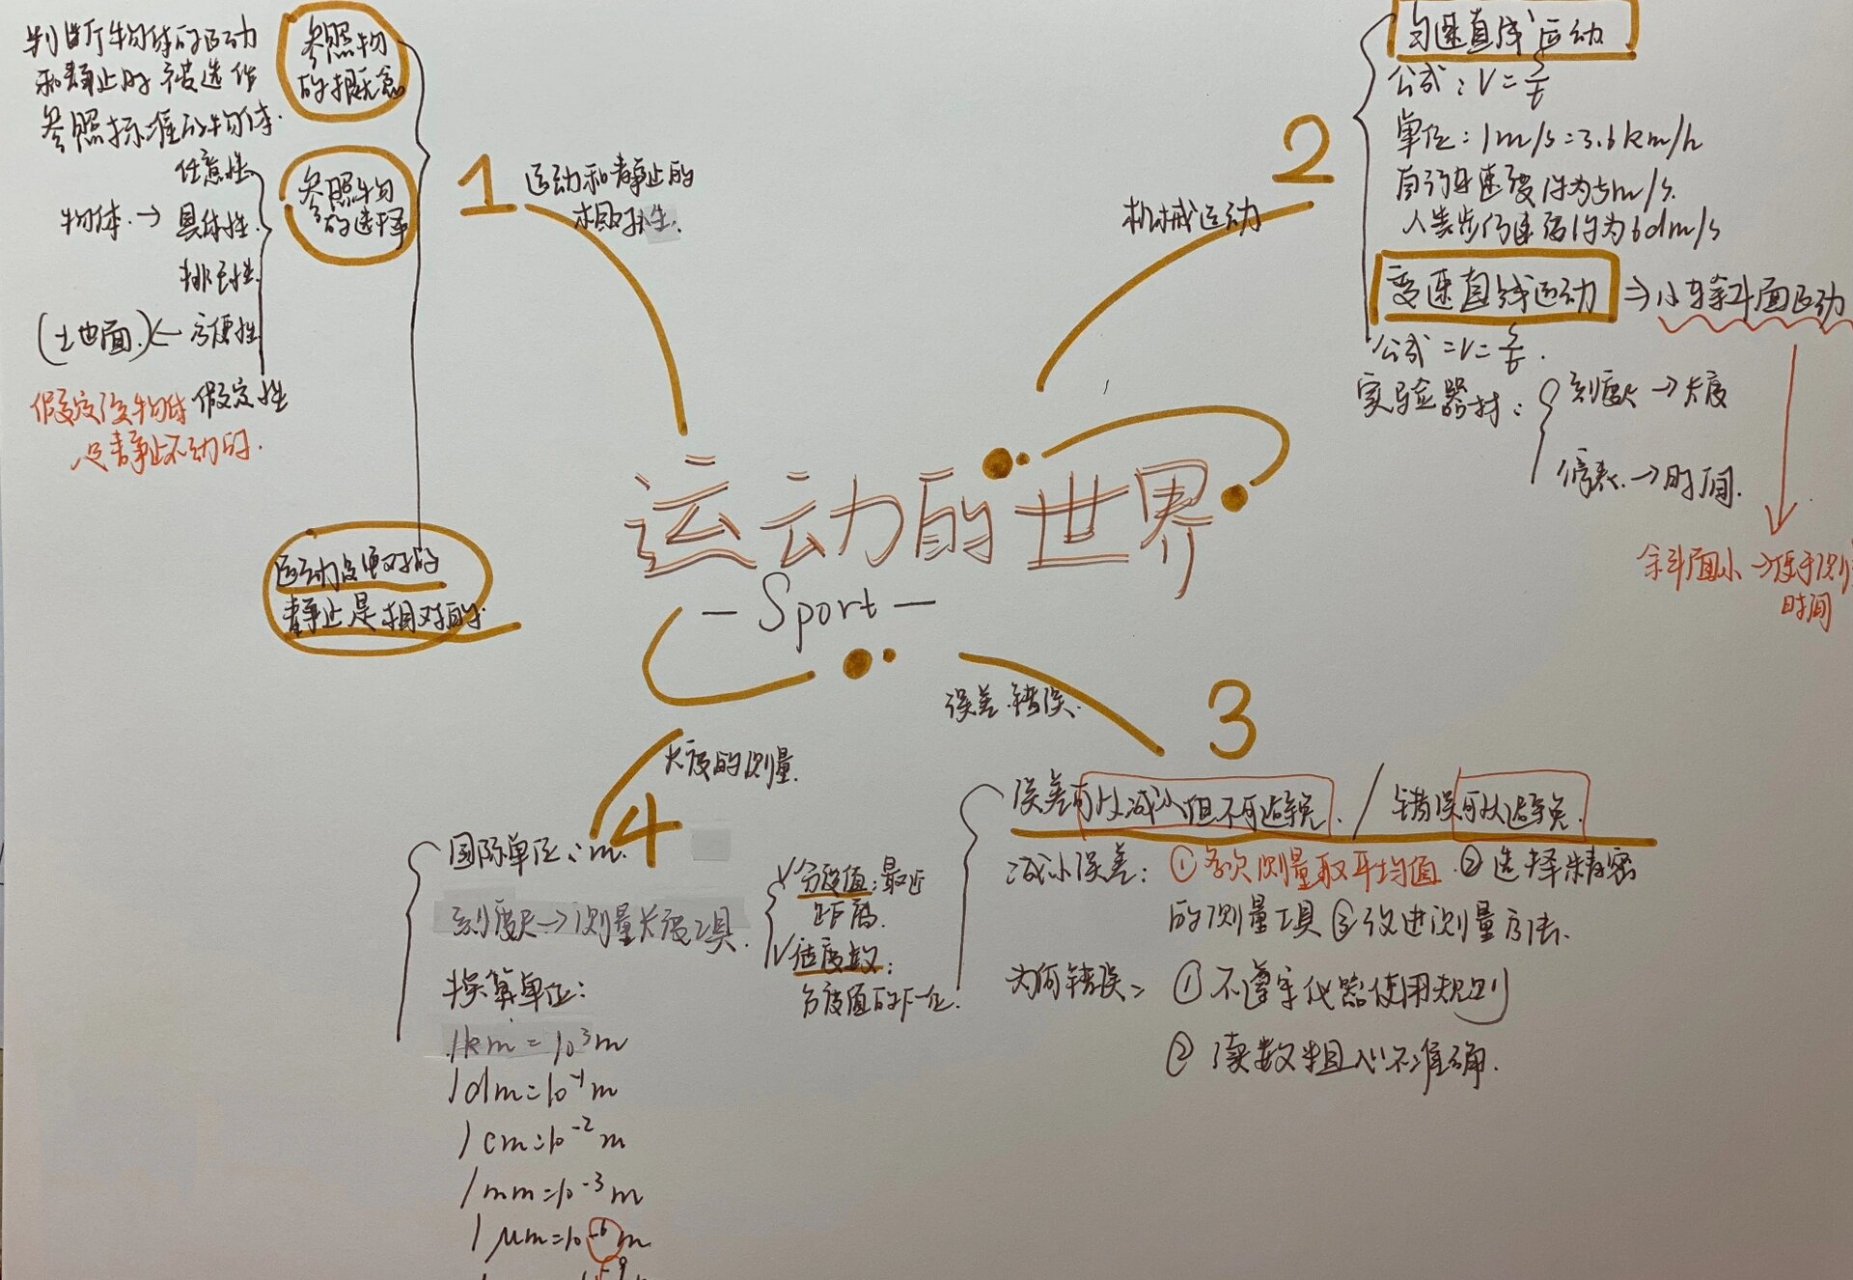 运动的世界
— Sport —
1
运动和静止的
相对性.
参照物
的概念
判断物体的运动
和静止时被选作
参照标准的物体.
参照物
的选择
任意性
物体. → 具体性.
排己性.
(土地面.) ← 方便性
假定性
假定该物体
是静止不动的.
运动是绝对的
静止是相对的.
2
机械运动
匀速直线运动
公式: V = s/t
单位: 1m/s = 3.6km/h
自行车速度约为5m/s.
人散步行速度约为6dm/s
变速直线运动 ⇒ 小车斜面运动
公式 = V = s/t.
实验器材:
刻度尺 → 长度
停表. → 时间.
斜面小 → 便于测
时间
3
误差.错误.
误差可以减小但不可避免. / 错误可以避免.
减小误差: ①多次测量取平均值. ②选择精密
的测量工具 ③改进测量方法.
为何错误: ①不遵守仪器使用规则
②读数粗心不准确.
4
长度的测量.
国际单位: m.
刻度尺 → 测量长度工具.
√分度值: 最近
距离.
√估度数:
分度值的下一位.
换算单位:
1km = 10³m
1dm = 10⁻¹m
1cm = 10⁻²m
1mm = 10⁻³m
1μm = 10⁻⁶m